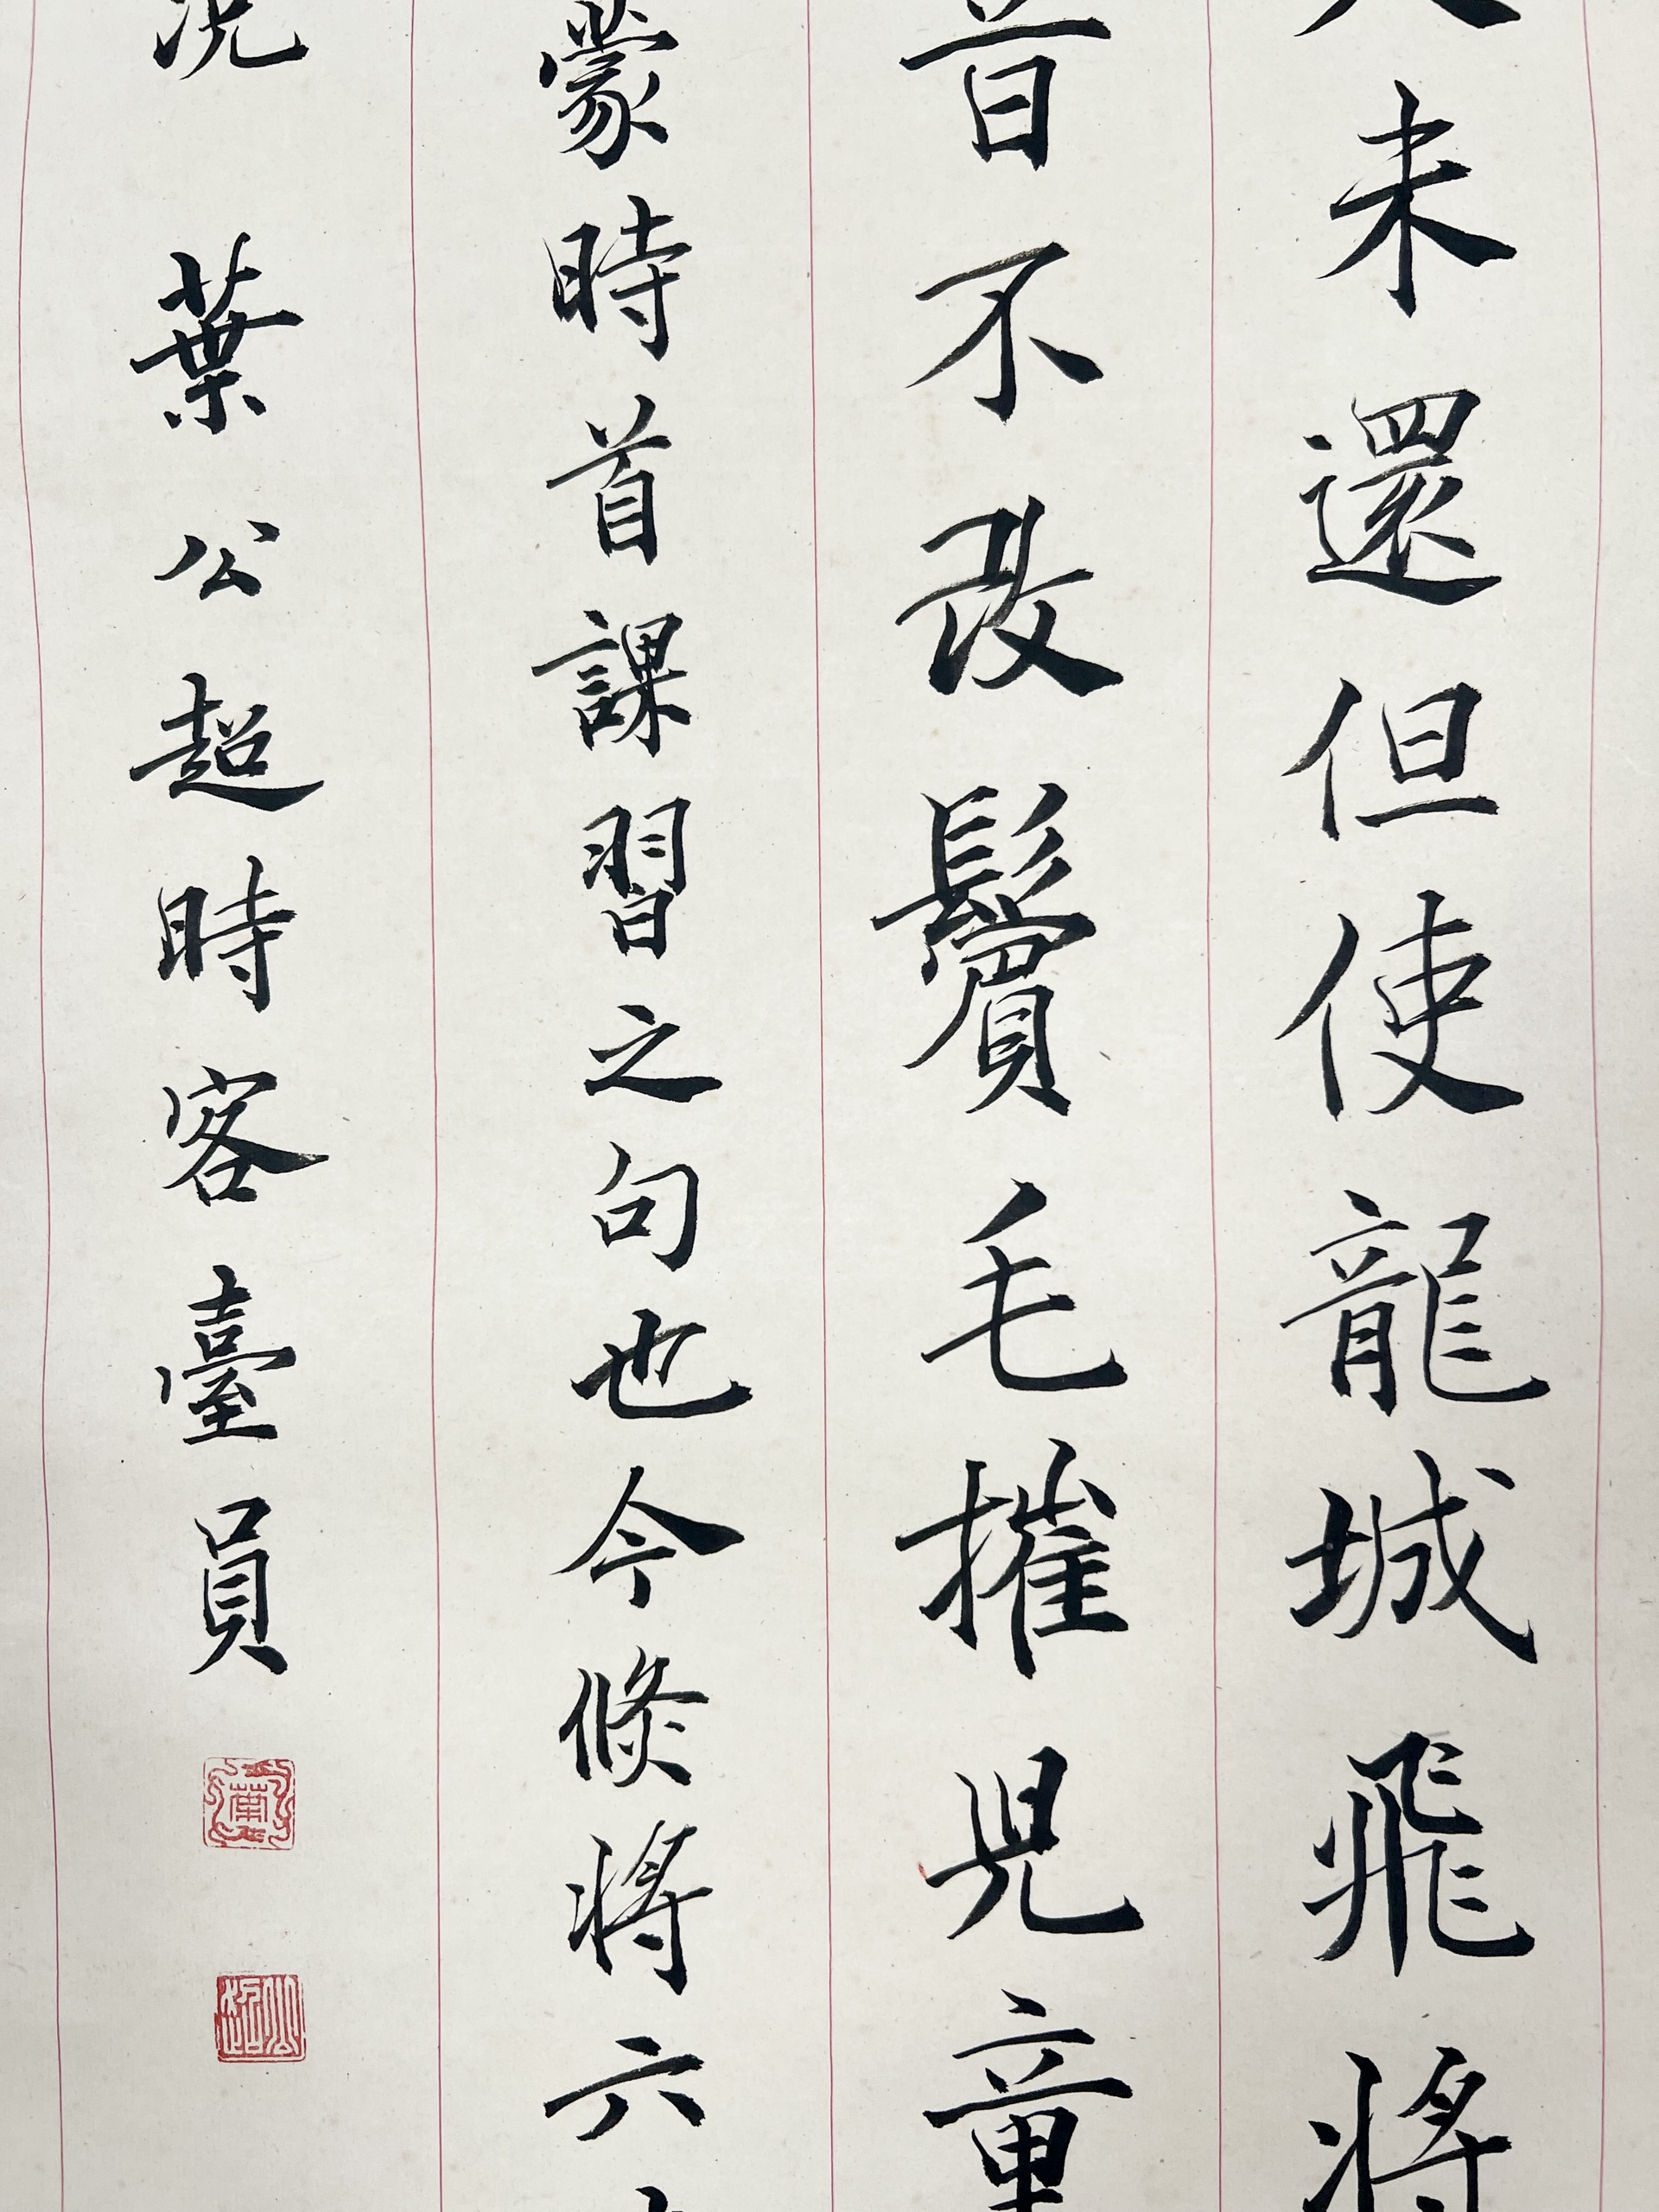 人未還但使龍城飛將
音不改鬢毛摧兒童
蒙時首課習之句也今倏將六
況 葉公超時客臺員
公超